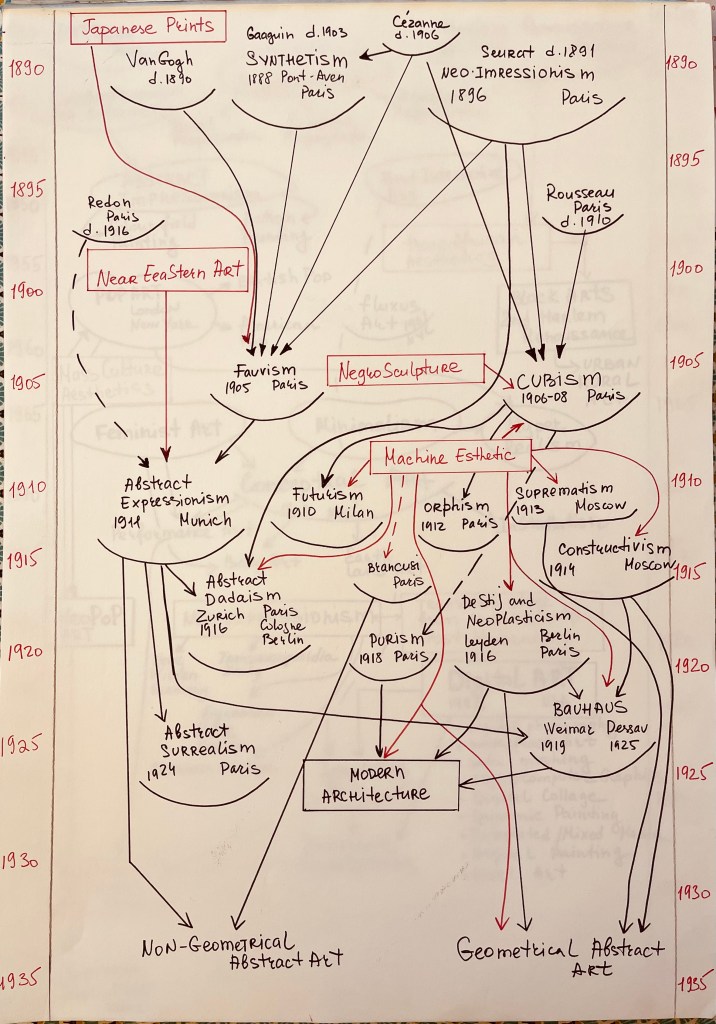 Japanese Prints
Gauguin d.1903
Cézanne
d.1906
1890
Van Gogh
d.1890
SYNTHETISM
1888 Pont-Aven
Paris
Seurat d.1891
NEO-IMRESSIONISM
1896 Paris
1890
1895
Redon
Paris
d.1916
1895
Rousseau
Paris
d.1910
1900
Near EeaStern Art
1900
Fauvism
1905 Paris
NegroSculpture
CUBISM
1906-08 Paris
1905
1905
Machine Esthetic
1910
Abstract
Expressionism
1911 Munich
Futurism
1910 Milan
Orphism
1912 Paris
Suprematism
1913 Moscow
1910
1915
Abstract
Dadaism
Zurich Paris
1916 Cologne
Berlin
Brancusi
Paris
Constructivism
1914 Moscow
1915
1920
Purism
1918 Paris
De Stij and
NeoPlasticism
Leyden Berlin
1916 Paris
1920
1925
Abstract
Surrealism
1924 Paris
MODERN
ARCHITECTURE
BAUHAUS
Weimar Dessau
1919 1925
1925
1930
Non-Geometrical
Abstract Art
Geometrical Abstract
Art
1930
1935
1935